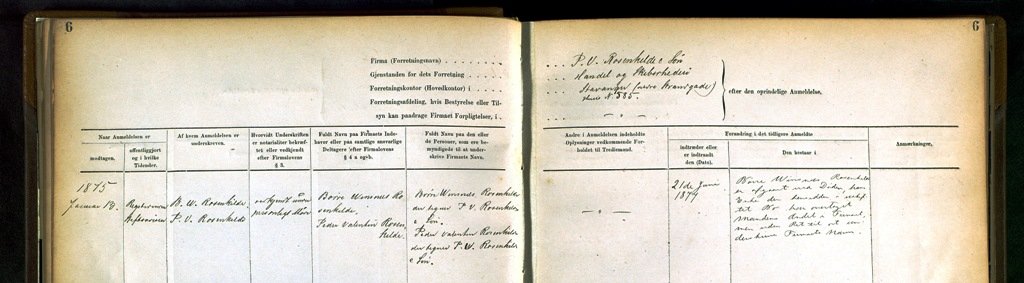 6
6
Firma (Forretningsnavn) . . . . . . .
Gjenstanden for dets Forretning . . . . .
Forretningskontor (Hovedkontor) i . . . .
Forretningsafdeling, hvis Bestyrelse eller Til-
syn kan paadrage Firmaet Forpligtelser, i .
P. V. Rosenkilde & Søn
Handel og Skibsrhederi
Stavanger (nedre Strandgade)
N. 585.
— „ —
efter den oprindelige Anmeldelse.
Naar Anmeldelsen er
modtagen.
offentliggjort og i hvilke Tidender.
Af hvem Anmeldelsen er underskreven.
Hvorvidt Underskriften er notarialiter bekræftet eller vedkjendt efter Firmalovens § 3.
Fuldt Navn paa Firmaets Indehaver eller paa samtlige ansvarlige Deltagere efter Firmalovens § 4 a og b.
Fuldt Navn paa den eller de Personer, som ere bemyndigede til at underskrive Firmaets Navn.
Andre i Anmeldelsen indeholdte Oplysninger vedkommende Forholdet til Tredjemand.
Forandring i det tidligere Anmeldte
indtræder eller er indtraadt den (Dato).
Den bestaar i
Anmærkninger.
1875
Januar 12.
B. W. Rosenkilde
P. V. Rosenkilde
vedkjendt under
personligt
Børre Wimsnes Ro-
senkilde.
Peder Valentin Rosen-
kilde.
Børre Wimsnes Rosenkilde
der tegner P. V. Rosenkilde
& Søn.
Peder Valentin Rosenkilde
der tegner P. V. Rosenkilde
& Søn.
— „ —
21de Juni
1877
Børre Wimsnes Rosenkilde
er afgaaet ved Døden, hans
Enke
Mandens Andel i Firmaet,
men uden Ret til at un-
derskrive Firmaets Navn.